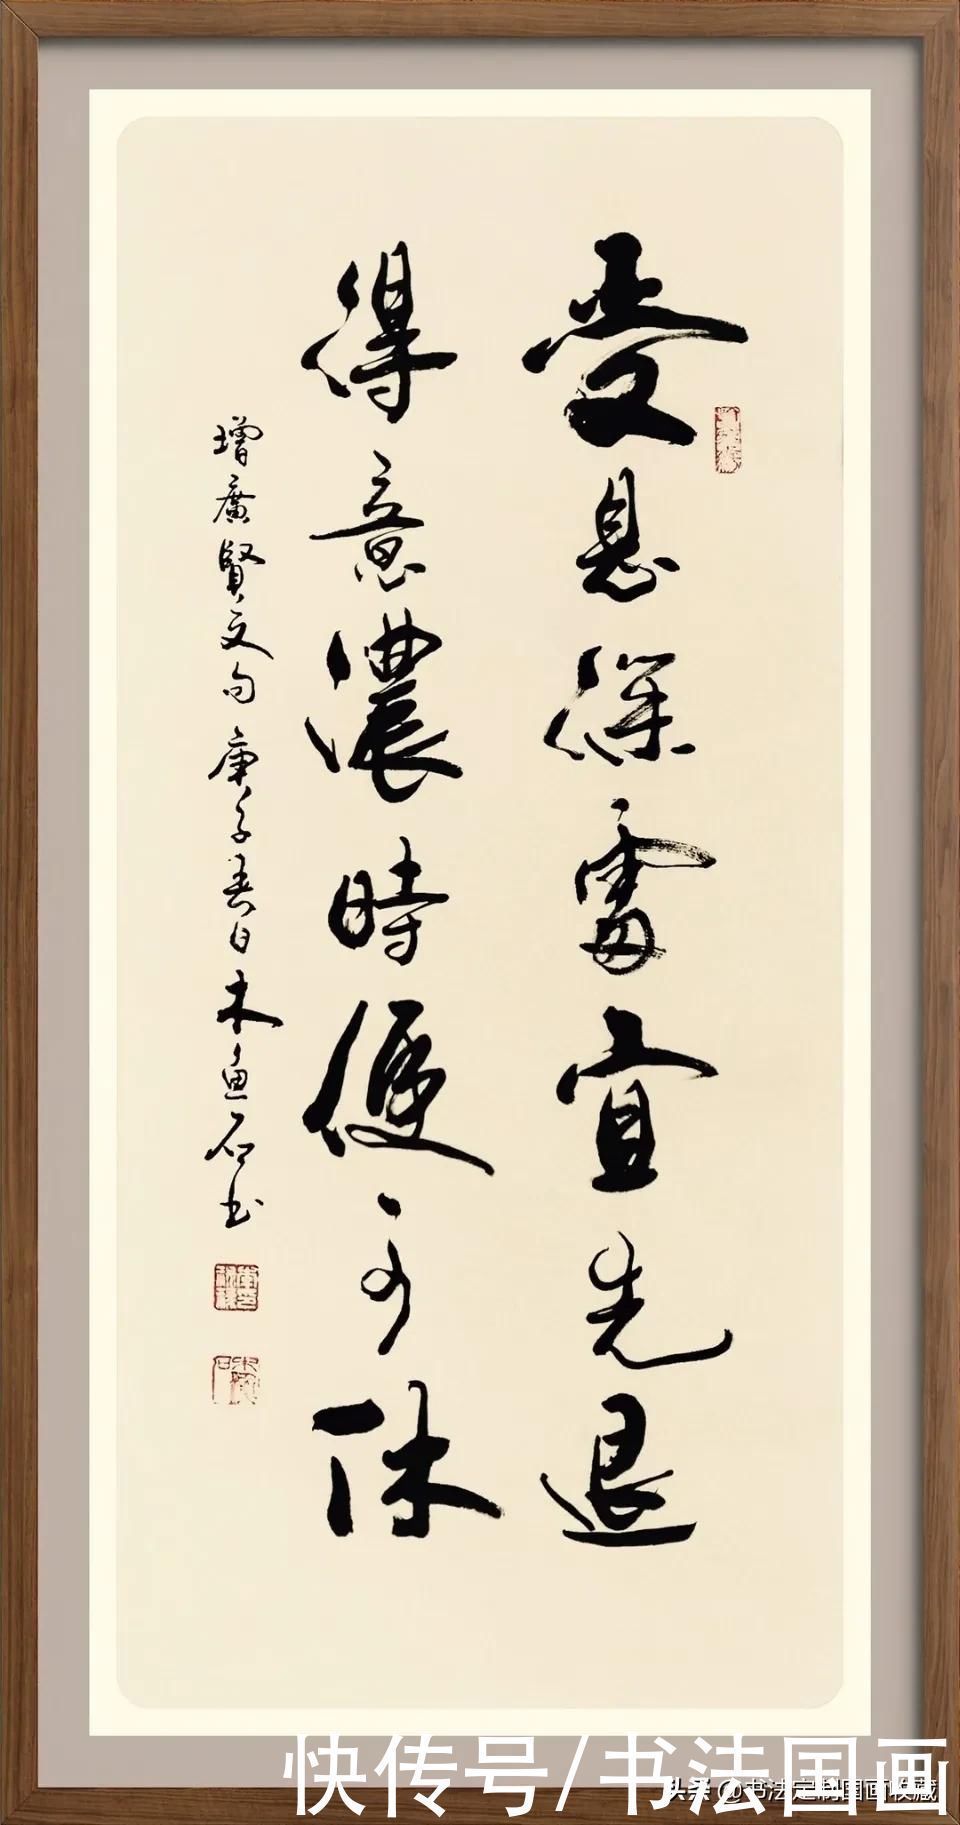 受恩深處宜先退
得意濃時便可休
增廣賢文句 庚子春日木鱼石书
快传号/书法国画
头条 @书法定制国画收藏